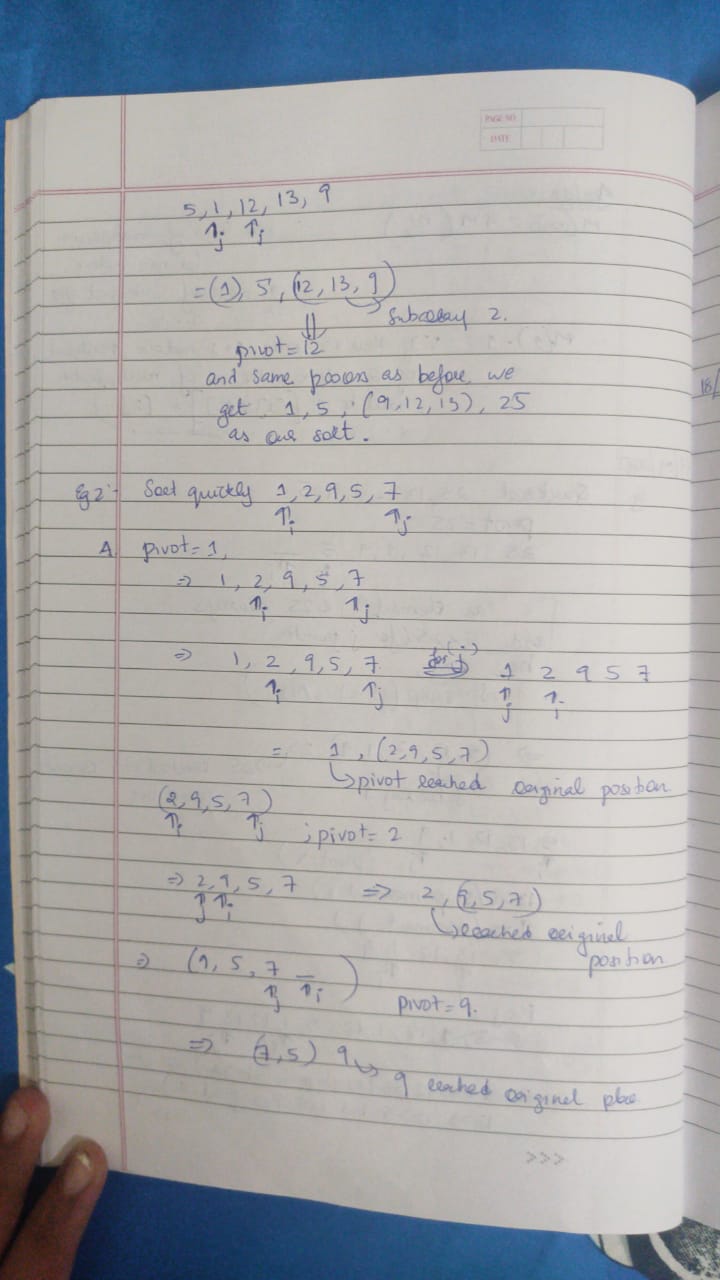 PAGE NO
DATE
5, 1, 12, 13, 9
↑j ↑i
= (1), 5, (12, 13, 9)
subarray 2.
⇓
pivot = 12
and same process as before we
get 1, 5, (9, 12, 13), 25
as our sort.
Eg 2:- Sort quickly 1, 2, 9, 5, 7
↑i ↑j
A. pivot = 1,
⇒ 1, 2, 9, 5, 7
↑i ↑j
⇒ 1, 2, 9, 5, 7 1 2 9 5 7
↑i ↑j ↑j ↑i
= 1, (2, 9, 5, 7)
↳ pivot reached original position.
(2, 9, 5, 7)
↑i ↑j ; pivot = 2
⇒ 2, 9, 5, 7 ⇒ 2, (9, 5, 7)
↑j ↑i ↳ reached original
position
⇒ (9, 5, 7 _ )
↑j ↑i pivot = 9.
⇒ (7, 5) 9 ↳
9 reached original place
>>>
18/